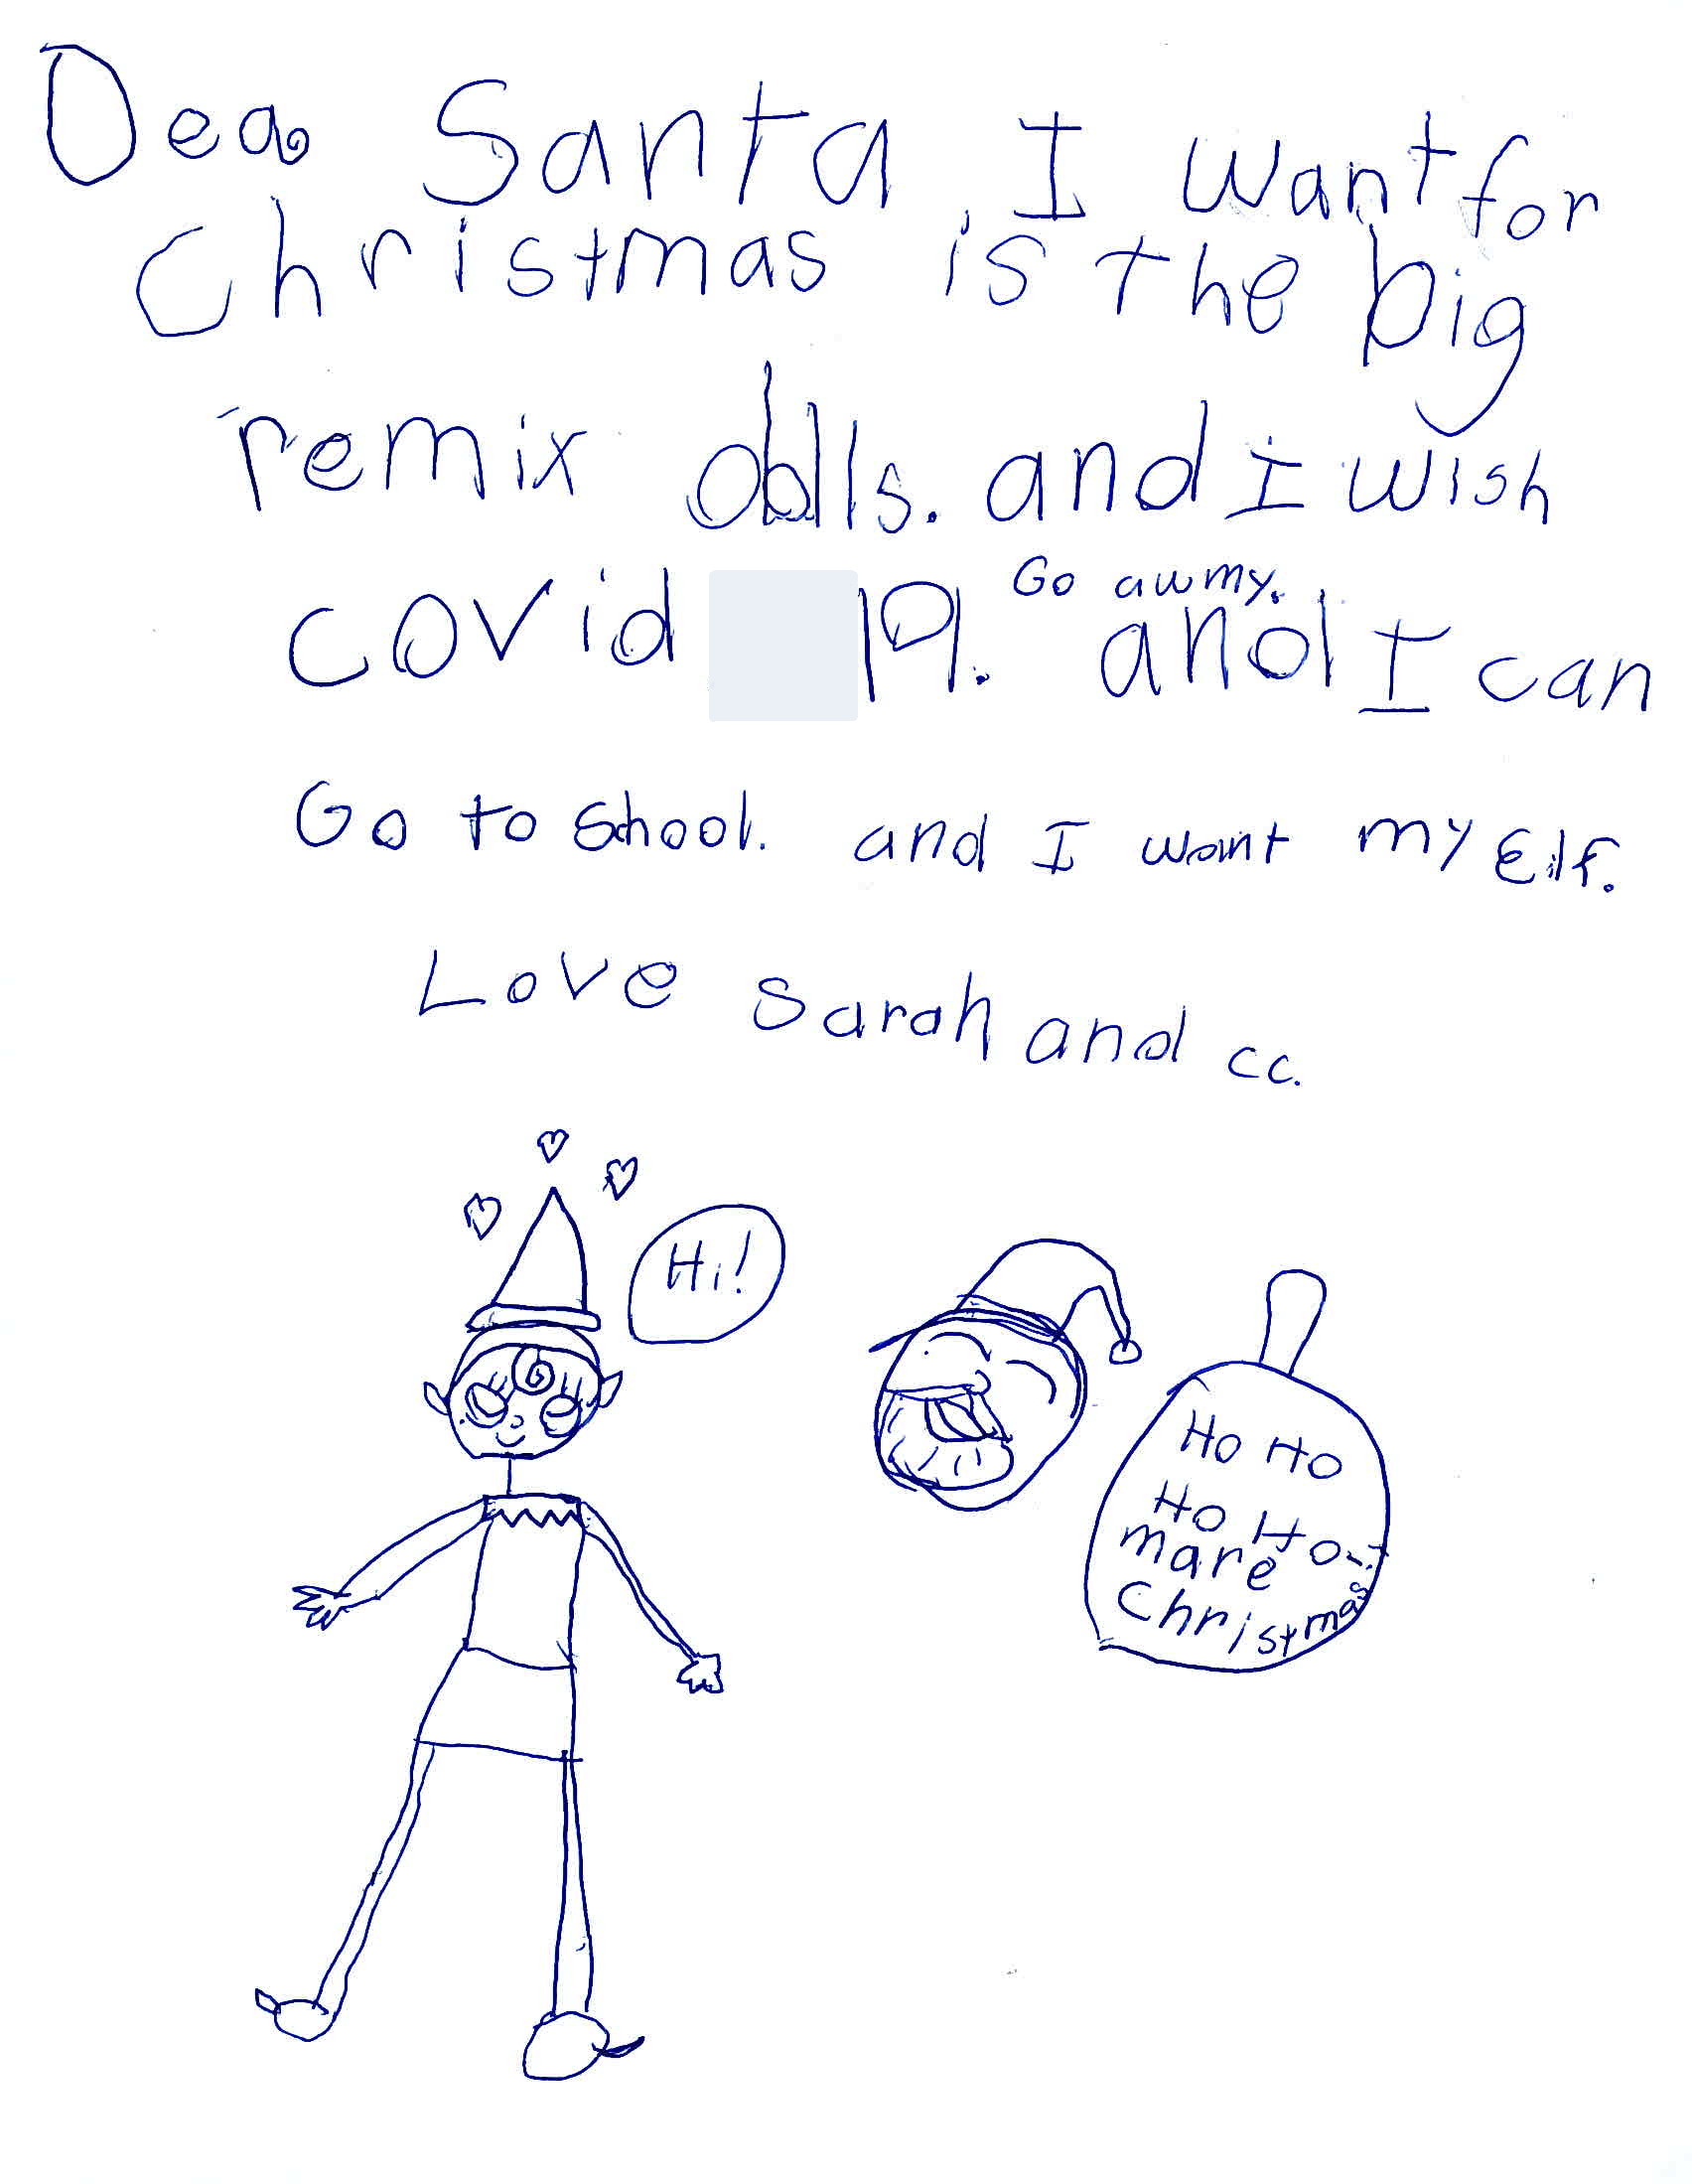 Dea Santa I want for
Christmas is the big
remix dolls. and I wish
covid 19. Go awmy. and I can
Go to School. and I want my Elf.
Love Sarah and cc.
Hi!
Ho Ho
Ho Ho
mare
Christmas